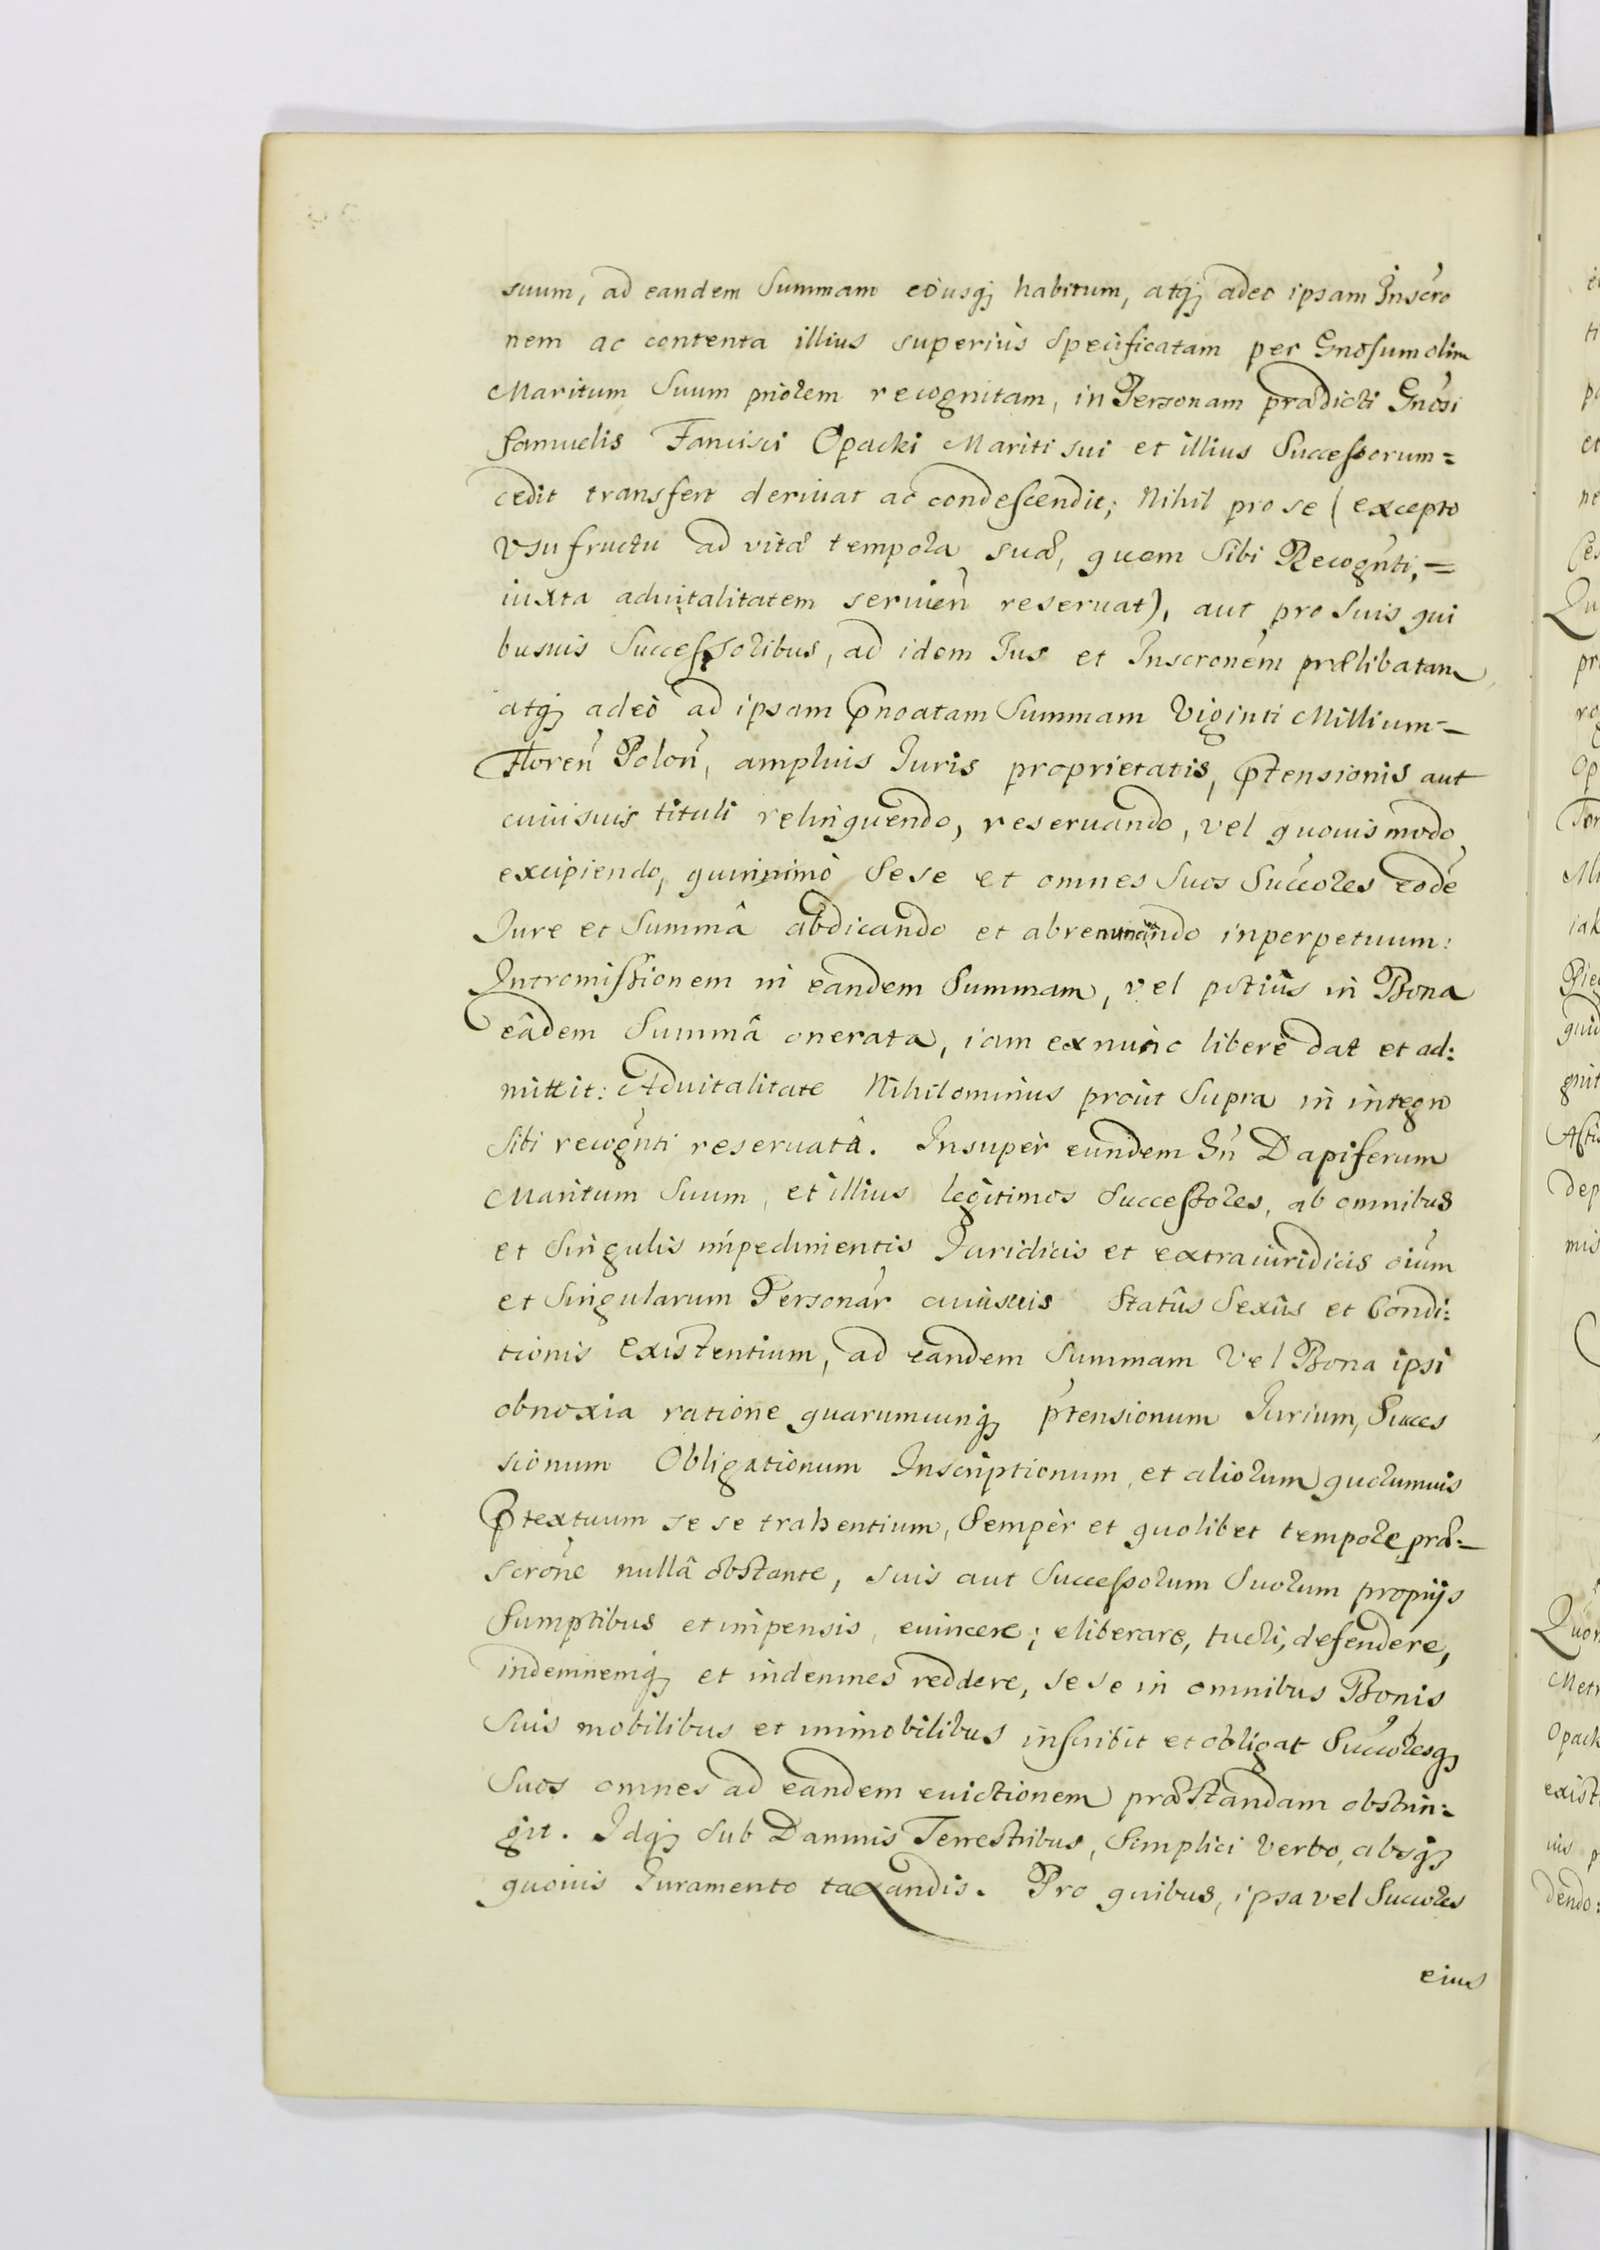 suum, ad eandem Summam eiusq habitum, atq adeo ipsam Inscro
nem ac contenta illius superius Specificatam per Gnosum olim
Maritum Suum priorem recognitam, in Personam prædicti Gnosi
Samuelis Fancisci Opacki Mariti sui et illius Successorum=
cedit transfert deriuat ac condescendit; Nihil pro se (excepto
vsufructu ad vitæ tempora suæ, quem Sibi Recognti,=
iuxta aduitalitatem seruien reseruat), aut pro Suis qui
busuis Successoribus, ad idem Ius et Inscronem prælibatam
atq adeò ad ipsam pnoatam Summam Viginti Millium=
Floren Polon, amplius Iuris proprietatis, ptensionis aut
cuiusuis tituli relinquendo, reseruando, vel quouis modo
excipiendo, quinnimò Sese et omnes Suos Succores eode
Iure et Summâ abdicando et abrenunciando inperpetuum:
Intromissionem in eandem Summam, vel potius in Bona
eâdem Summâ onerata, iam exnunc liberè dat et ad:
mittit: Aduitalitate Nihilominus prout Supra in integro
Sibi recognti reseruatâ. Insupèr eundem Gn Dapiferum
Maritum Suum, et illius legitimos Successores, ab omnibus
et Singulis impedimentis Iuridicis et extraiuridicis oium
et Singularum Personar cuiusuis Statûs Sexûs et Condi:
tionis Existentium, ad eandem Summam vel Bona ipsi
obnoxia ratione quarumcunq ptensionum Iurium, Succes
sionum Obligationum Inscriptionum, et aliorum quorumuis
ptextuum se se trahentium, Sempèr et quolibet tempore, præ=
scrone nullâ obstante, suis aut Successorum Suorum proprijs
Sumptibus et impensis, euincere, eliberare, tueri, defendere,
indemnemq et indemnes reddere, se se in omnibus Bonis
Suis mobilibus et immobilibus inscribit et obligat Succoresq
Suos omnes ad eandem euictionem præstandam obstrin:
git. Idq Sub Damnis Terrestribus, Simplici verbo, absq
quouis Iuramento taxandis. Pro quibus, ipsa vel Succores
eius